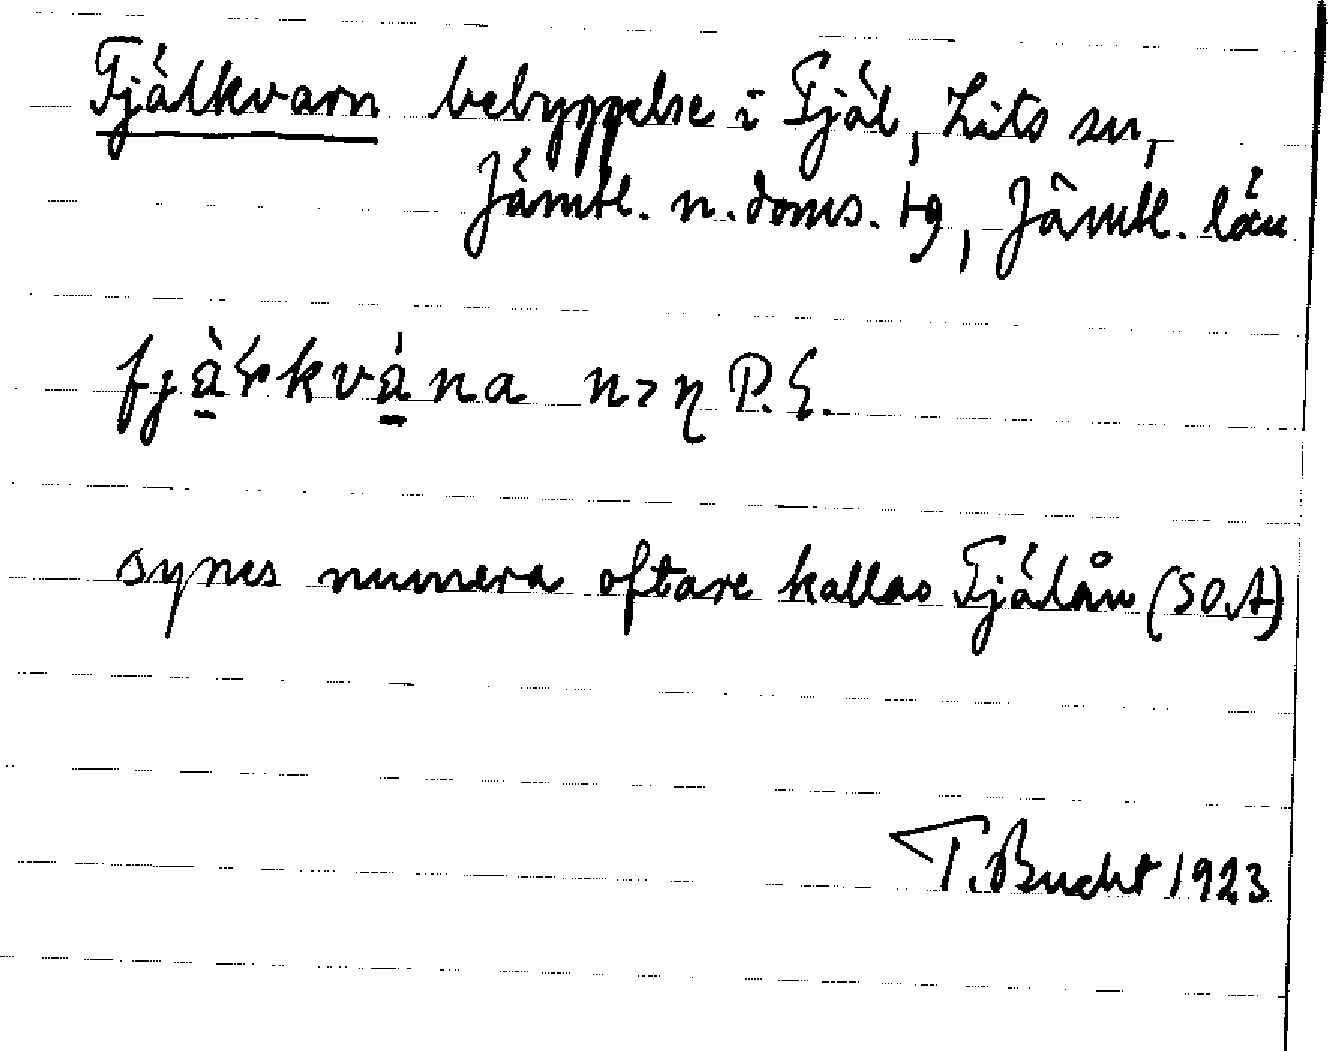 Fjälkvarn bebyggelse i Fjäl, Lits sn,
Jämtl. n. doms. tg, Jämtl. län
n>η P.E.
synes numera oftare kallas Fjälån (SOA)
T. Bucht 1923